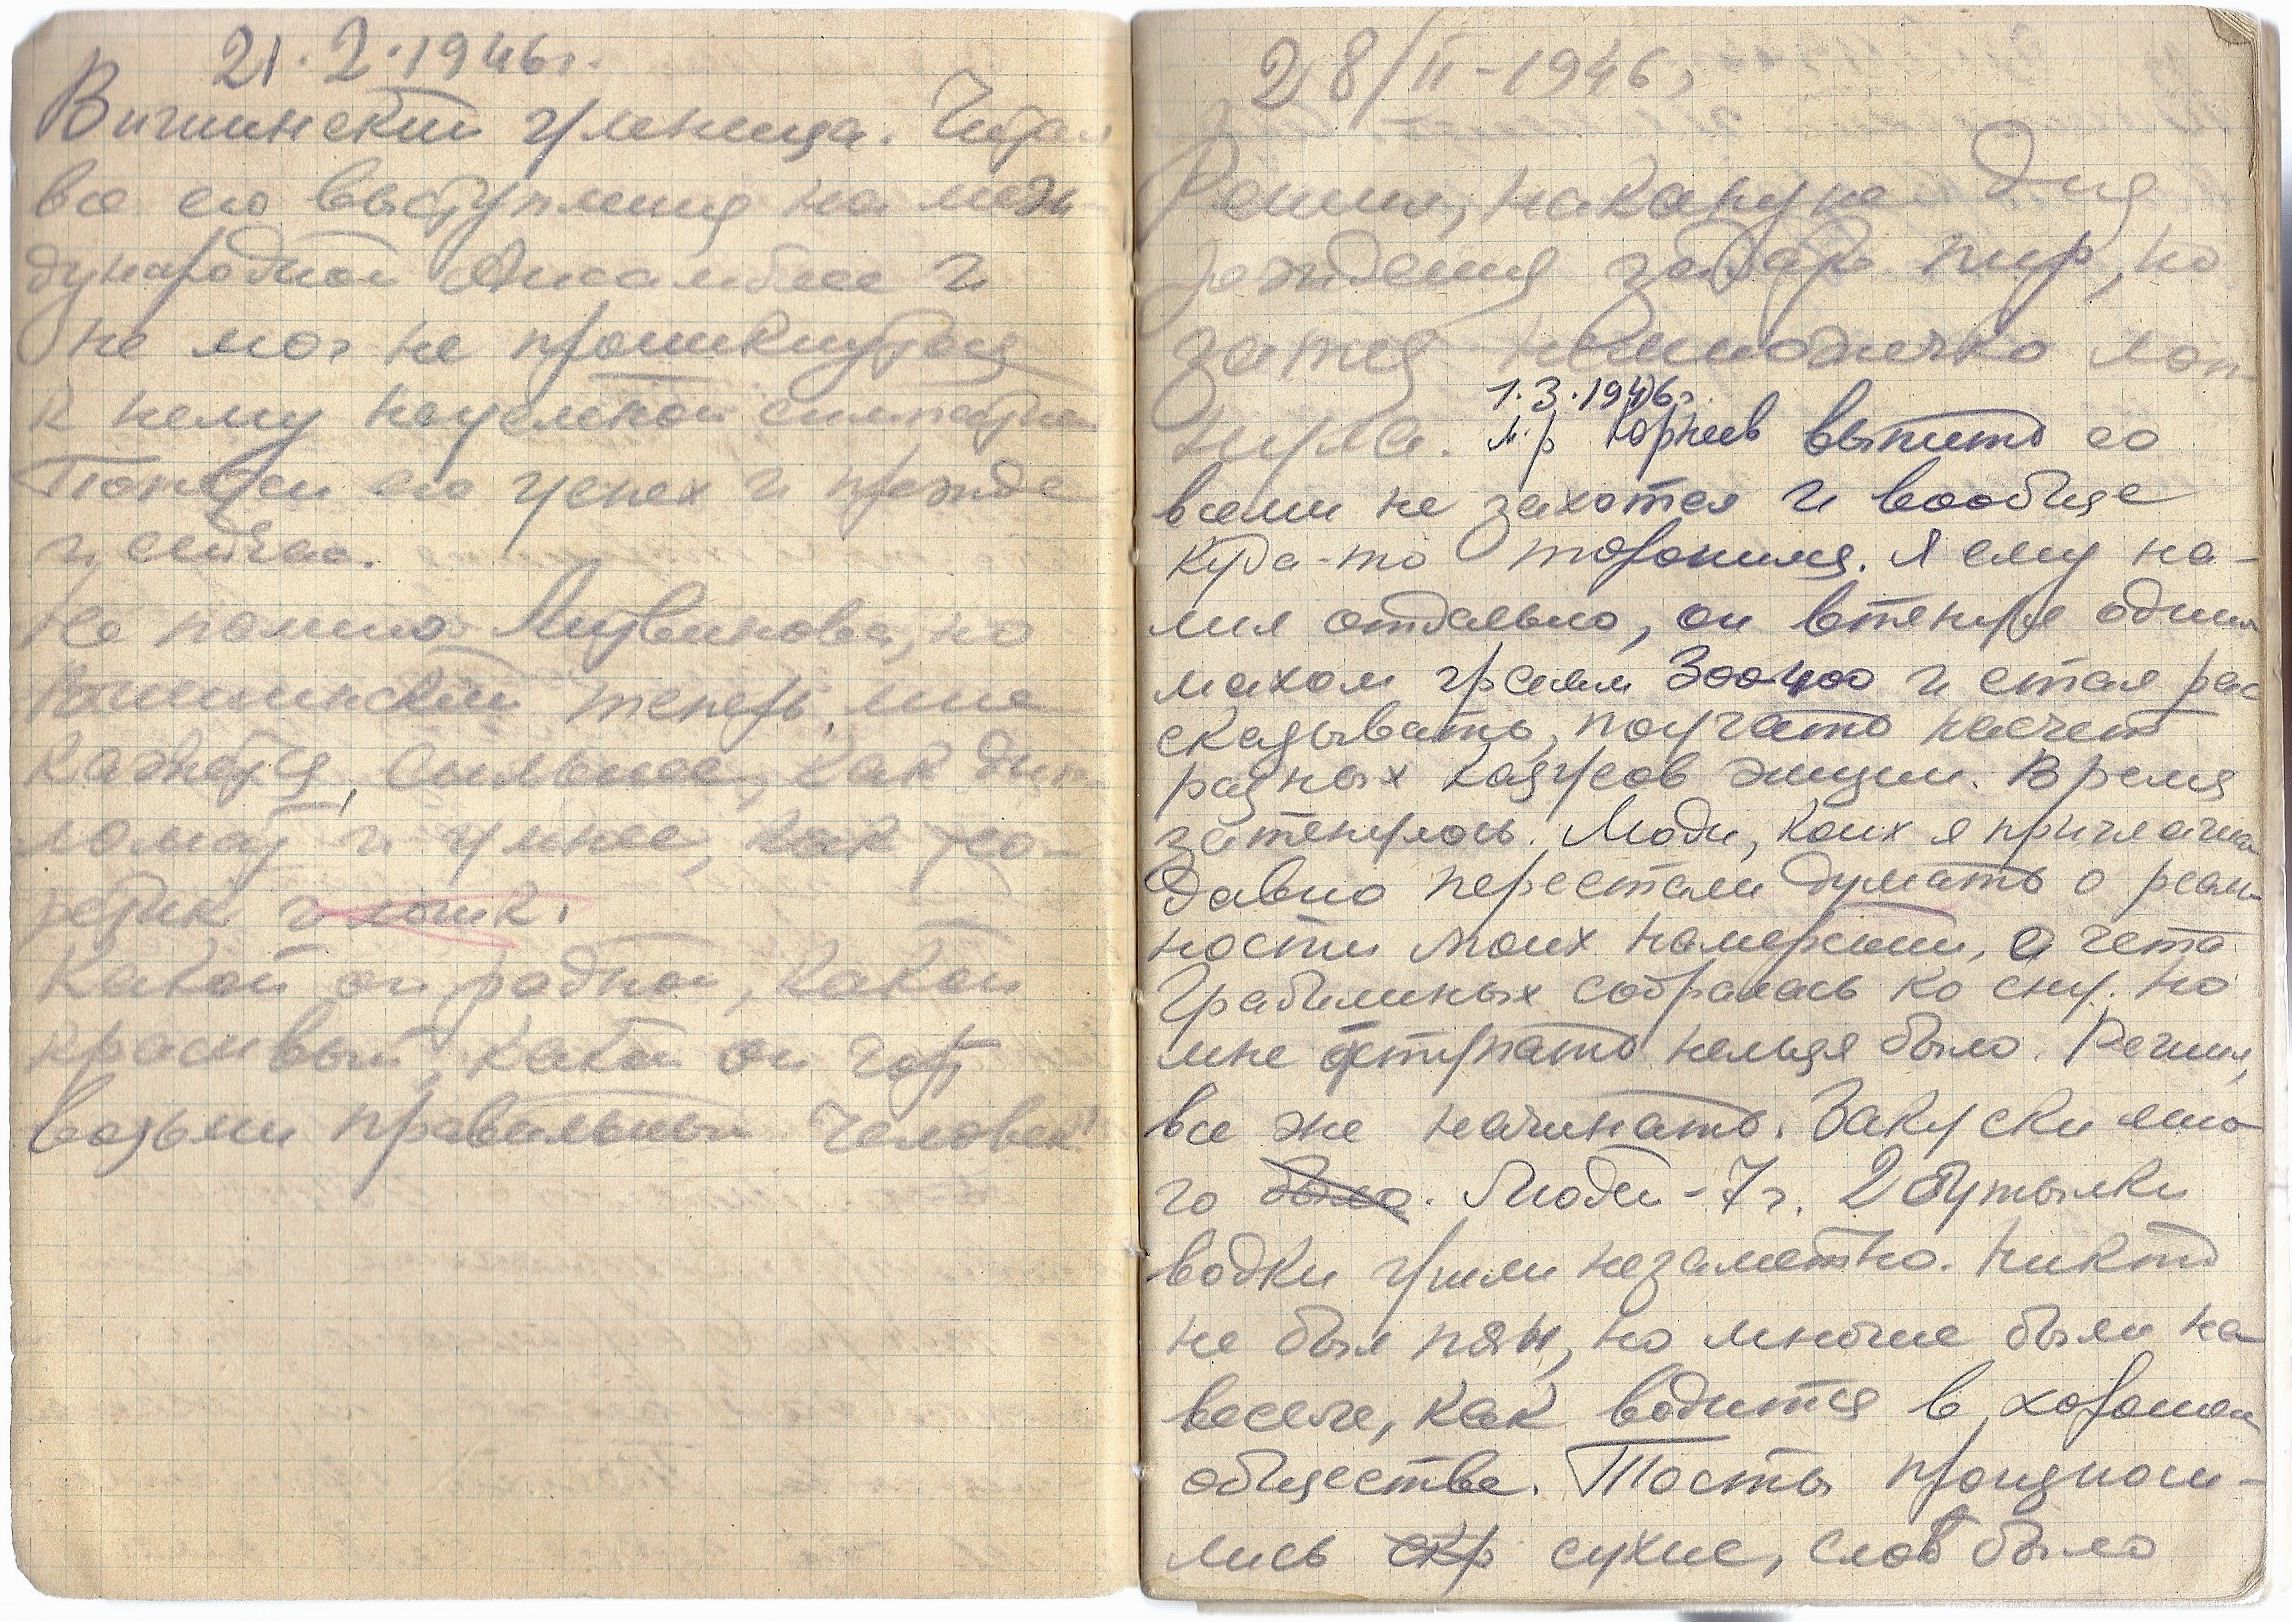 21.2.1946г.
Вишинский умница. Читал
все его выступления на меж-
дународной Ассамблее и
не мог не проникнуться
к нему неуемной симпатией
Понятен его успех и прежде
и сейчас.
Не помню Литвинова, но
Вышинский теперь, мне
кажется, сильнее, как дип-
ломат и умнее, как тео-
ретик и логик.
Какой он родной, какой
красивый, какой он чорт
возьми правильный человек!
28/II-1946г
Решил, накануне дня
рождения задать пир, но
затея немножечко лоп-
нула.
1.3.1946г.
М-р Корнеев выпить со
всеми не захотел и вообще
куда-то торопился. Я ему на-
лил отдельно, он втянул одним
махом грамм 300-400 и стал рас
сказывать, поучать насчет
разных казусов жизни. Время
затянулось. Люди, коих я пригласил
давно перестали думать о реаль
ности моих намерений, а чета
Грабилиных собралась ко сну. Но
мне отступать нельзя было. Решил,
все же начинать. Закуски мно-
го было. Людей - 7ч. 2 бутылки
водки ушли незаметно. Никто
не был пян, но многие были на
веселе, как водится в хорошем
обществе. Тосты произноси-
лись скр сухие, слов было